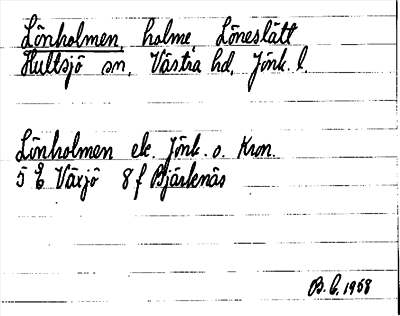 Lönholmen, holme, Löneslätt
Hultsjö sn, Västra hd, Jönk. l.
Lönholmen ek. Jönk. o. Kron.
5 E Växjö 8 f Bjärknäs
B. C. 1968